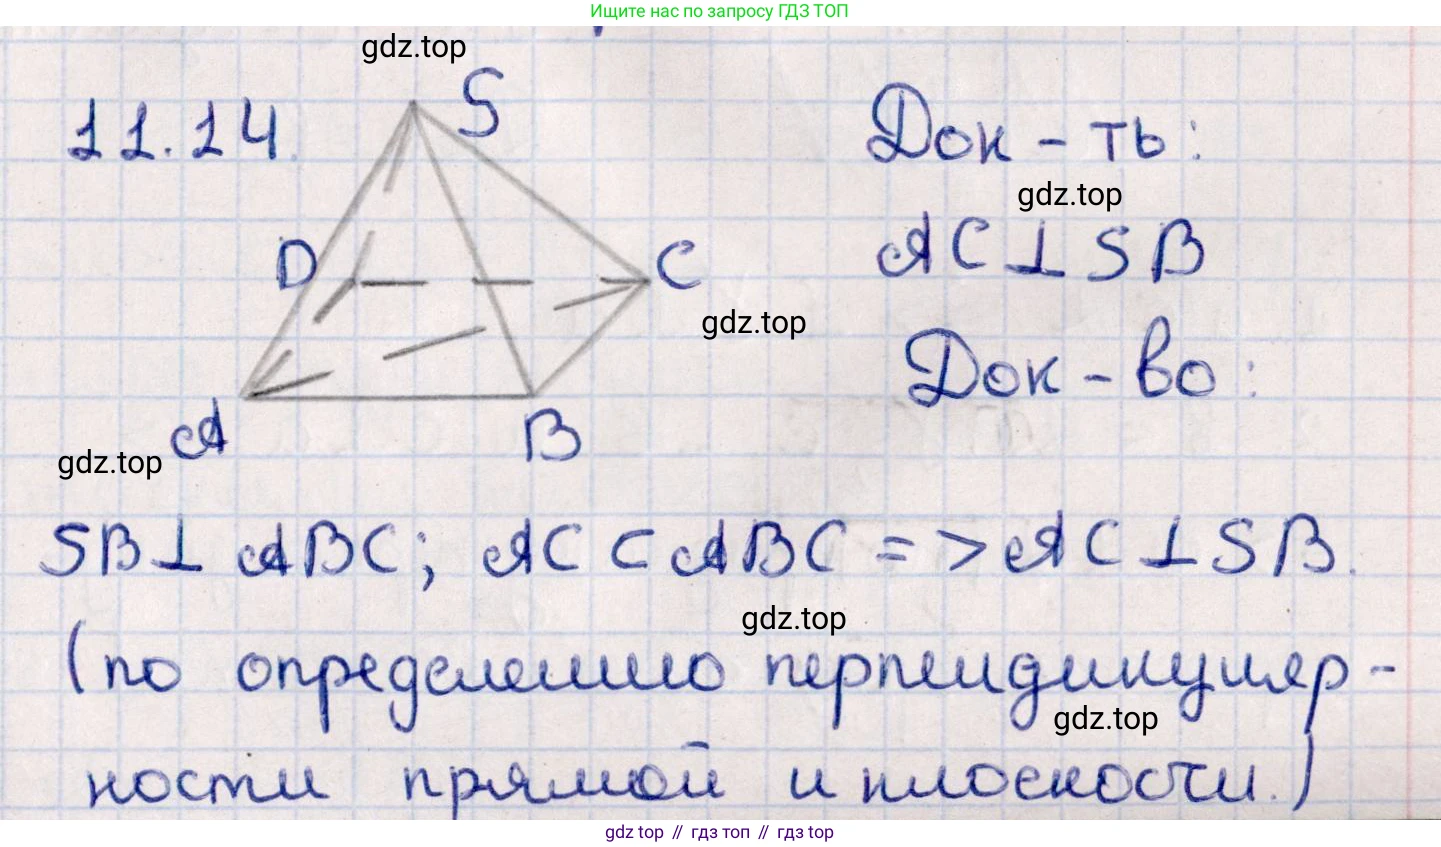 Ищите нас по запросу ГДЗ ТОП
gdz.top
11.14.
S
Док-ть:
gdz.top
D
C
AC⊥SB
gdz.top
Док-во:
A
B
gdz.top
SB⊥ABC; AC⊂ABC => AC⊥SB.
gdz.top
(по определению перпендикуляр-
gdz.top
ности прямой и плоскости.)
gdz top // гдз топ // гдз top